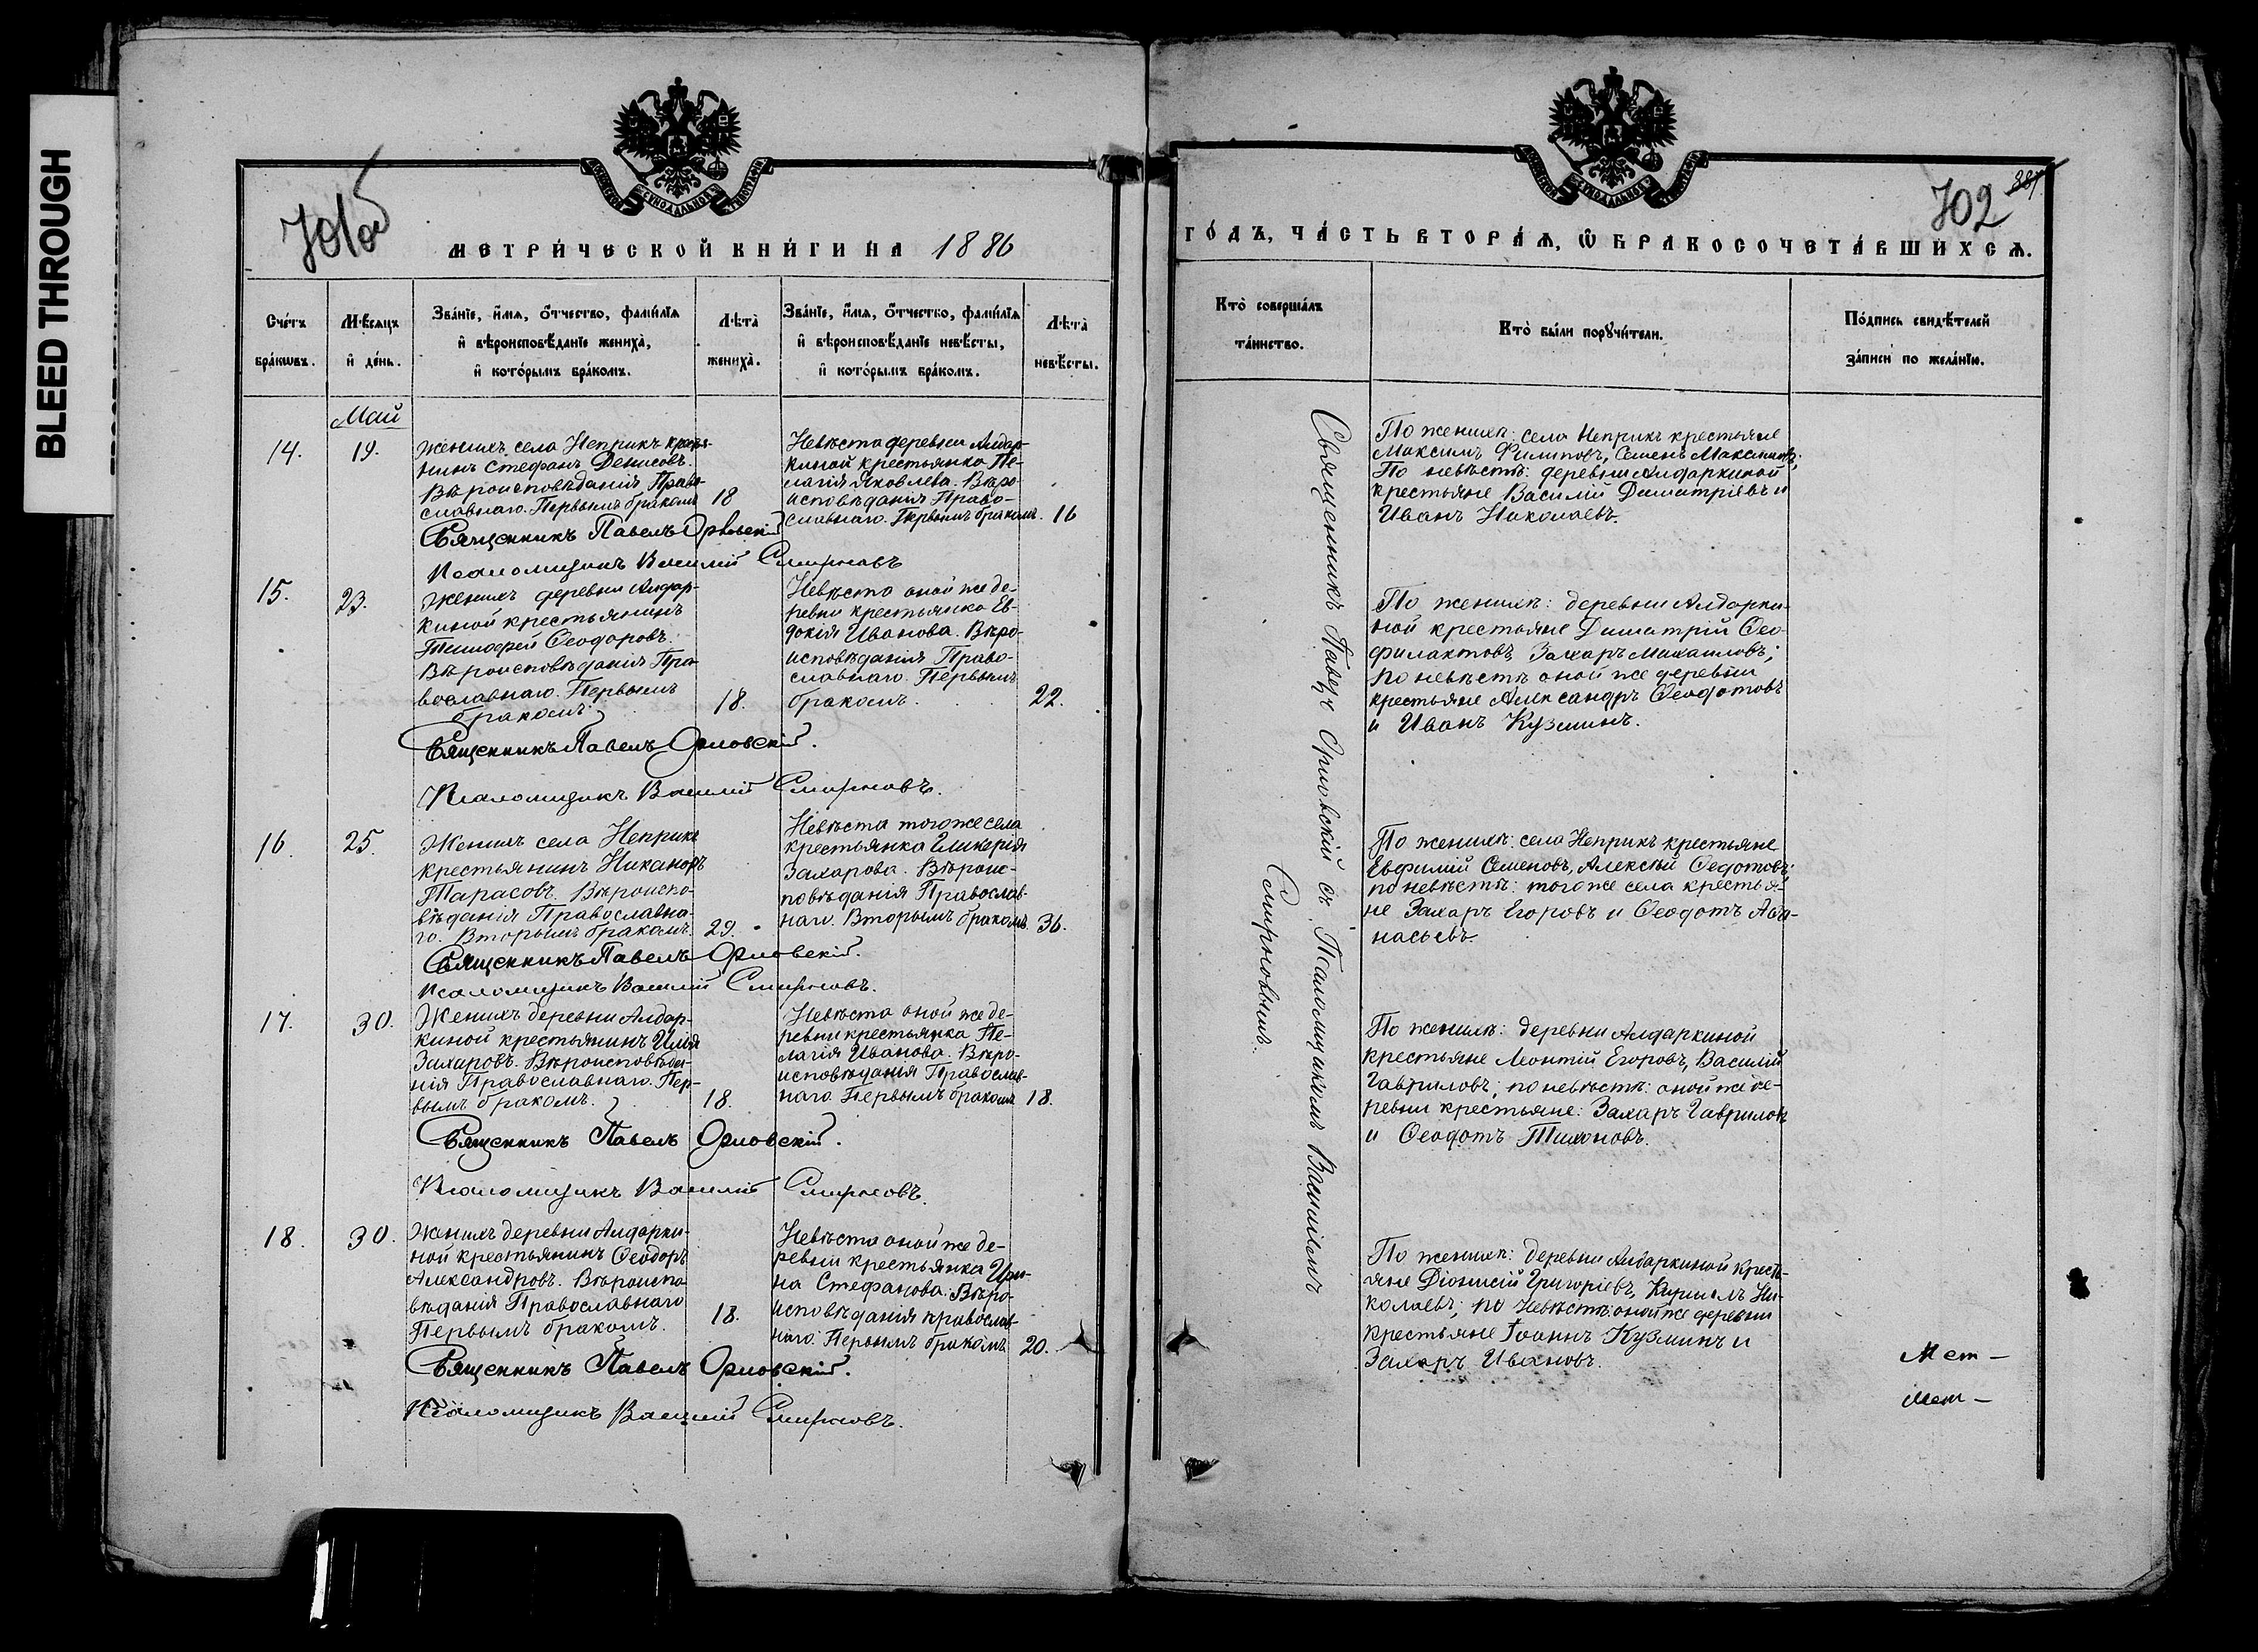 BLEED THROUGH
701об
МЕТРИ́ЧЕСКОЙ КНИ́ГИ НА 1886
Сче́тъ бра́кѡвъ.
Мѣ́сяцъ и҆ де́нь.
Зва́нїе, и҆́мѧ, ѻ҆́тчество, фами́лїѧ и҆ вѣроисповѣ́данїе женихà, и҆ кото́рымъ бра́комъ.
Лѣ́та женихà.
Зва́нїе, и҆́мѧ, ѻ҆́тчество, фами́лїѧ и҆ вѣроисповѣ́данїе невѣ́сты, и҆ кото́рымъ бра́комъ.
Лѣ́та невѣ́сты.
Май
14.
19.
Женихъ села Неприкъ кресть-
янинъ Стефанъ Денисовъ.
Вѣроисповѣданія Право-
славнаго. Первымъ бракомъ
18
Невѣста деревни Алдар-
киной крестьянка Пе-
лагія Яковлева. Вѣро-
исповѣданія Право-
славнаго. Первымъ бракомъ.
16
Священникъ Павелъ Орловскій
Псаломщикъ Василій Смирновъ
15.
23.
Женихъ деревни Алдар-
киной крестьянинъ
Тимофей Ѳеодоровъ.
Вѣроисповѣданія Пра-
вославнаго. Первымъ
бракомъ.
18.
Невѣста оной же де-
ревни крестьянка Ев-
докія Иванова. Вѣро-
исповѣданія Право-
славнаго. Первымъ
бракомъ.
22.
Священникъ Павелъ Орловскій.
Псаломщикъ Василій Смирновъ.
16.
25.
Женихъ села Неприкъ
крестьянинъ Никаноръ
Тарасовъ. Вѣроиспо-
вѣданія Православна-
го. Вторымъ бракомъ.
29.
Невѣста того же села
крестьянка Гликерія
Захарова. Вѣроис-
повѣданія Православ-
наго. Вторымъ бракомъ.
36.
Священникъ Павелъ Орловскій.
Псаломщикъ Василій Смирновъ.
17.
30.
Женихъ деревни Алдар-
киной крестьянинъ Илія
Захаровъ. Вѣроисповѣда-
нія Православнаго. Пер-
вымъ бракомъ.
18.
Невѣста оной же де-
ревни крестьянка Пе-
лагія Иванова. Вѣро-
исповѣданія Православ-
наго. Первымъ бракомъ
18.
Священникъ Павелъ Орловскій.
Псаломщикъ Василій Смирновъ.
18.
30.
Женихъ деревни Алдарки-
ной крестьянинъ Ѳеодоръ
Александровъ. Вѣроиспо-
вѣданія Православнаго
Первымъ бракомъ.
18.
Невѣста оной же де-
ревни крестьянка Ири-
на Стефанова. Вѣро-
исповѣданія православ-
наго. Первымъ бракомъ
20.
Священникъ Павелъ Орловскій.
Псаломщикъ Василій Смирновъ.
702
ГО́ДЪ, ЧА́СТЬ ВТОРА́Ѧ, Ѡ҆ БРАКОСОЧЕТА́ВШИХСѦ.
Кто̀ соверша́лъ та́инство.
Кто̀ бы́ли порꙋчи́тели.
По́дпись свидѣ́телей за́писи по жела́нїю.
Священникъ Павелъ Орловскій съ Псаломщикомъ Василіемъ
Смирновымъ.
По женихѣ: села Неприкъ крестьяне
Максимъ Филиповъ, Семенъ Максимовъ;
По невѣстѣ: деревни Алдаркиной
крестьяне Василій Димитріевъ и
Иванъ Николаевъ.
По женихѣ: деревни Алдарки-
ной крестьяне Димитрій Ѳео-
филактовъ, Захаръ Михаиловъ;
по невѣстѣ оной же деревни
крестьяне Александръ Ѳеодотовъ
и Иванъ Кузминъ.
По женихѣ: села Неприкъ крестьяне
Евфимій Семеновъ, Алексѣй Ѳедотовъ;
по невѣстѣ: того же села крестья-
не Захаръ Егоровъ и Ѳеодотъ Аѳа-
насьевъ.
По женихѣ: деревни Алдаркиной
крестьяне Леонтій Егоровъ, Василій
Гавриловъ; по невѣстѣ: оной же де-
ревни крестьяне: Захаръ Гавриловъ
и Ѳеодотъ Тихоновъ.
По женихѣ: деревни Алдаркиной кресть-
яне Діонисій Григоріевъ, Кириллъ Ни-
колаевъ; по невѣстѣ: оной же деревни
крестьяне Іоаннъ Кузминъ и
Захаръ Ивановъ.